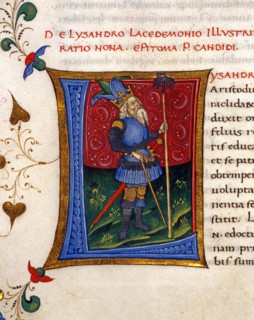 DE LYSANDRO LACEDEMONIO ILLUSTRI
RATIO NONA. EPITOMA P. CANDIDI.
L
YSANDR
Aristodu
duxit
filius
ris educa
et se patr
obtemper
volupta
nentia se
stitit. L
N. edoct
nam pri
bif sum